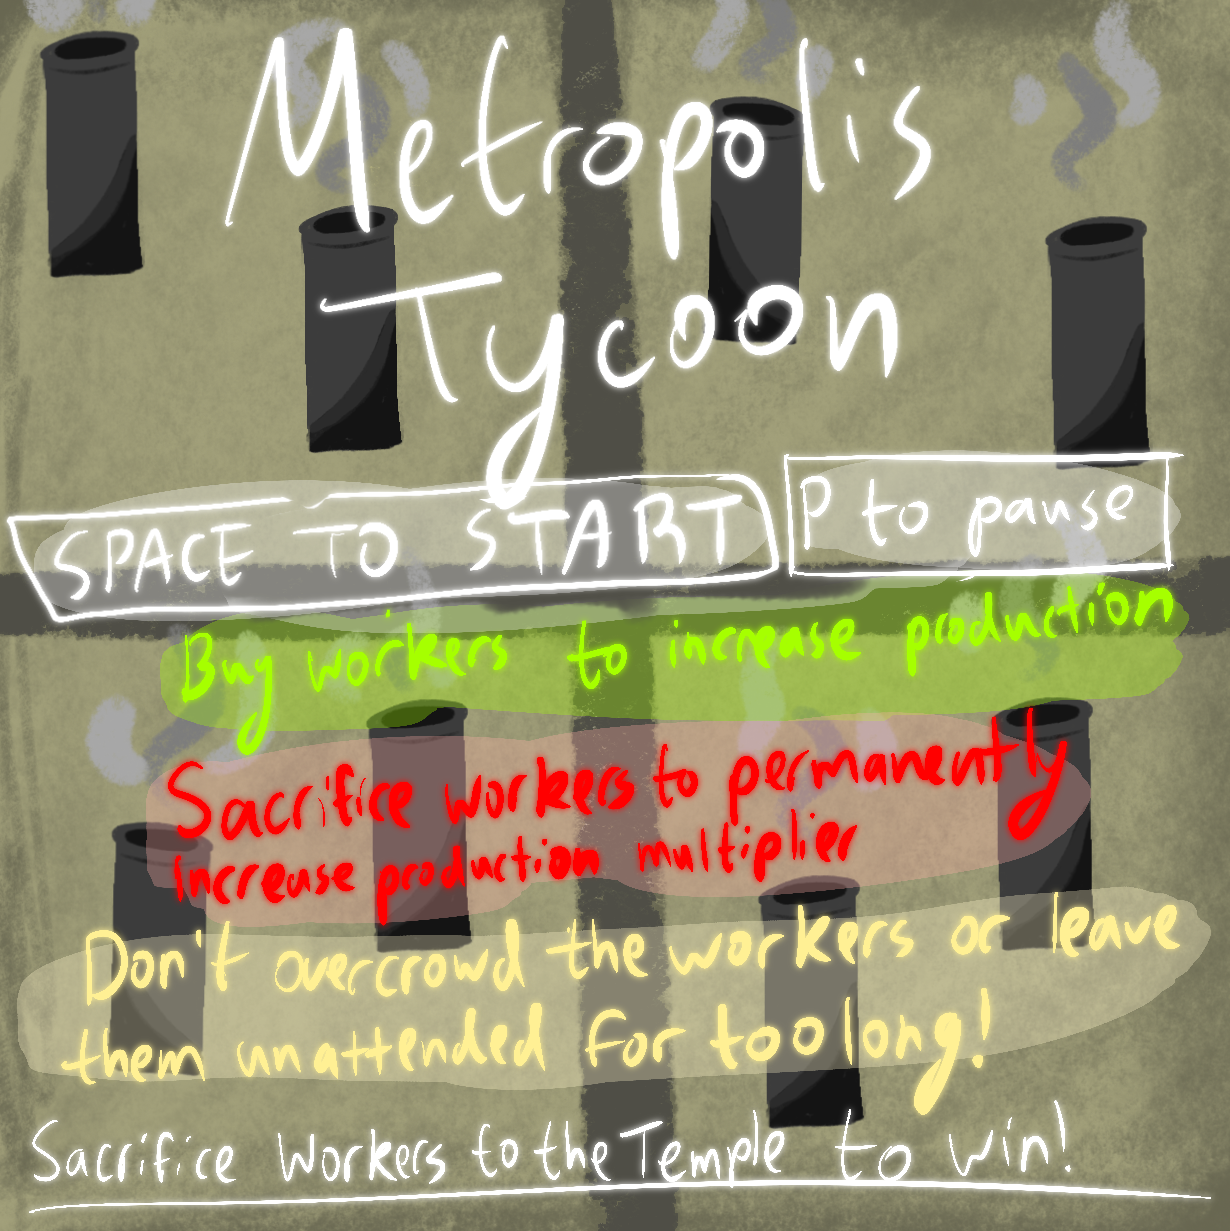 Metropolis
Tycoon
SPACE TO START
P to pause
Buy workers to increase production
Sacrifice workers to permanently
increase production multiplier
Don't overcrowd the workers or leave
them unattended for too long!
Sacrifice Workers to the Temple to win!